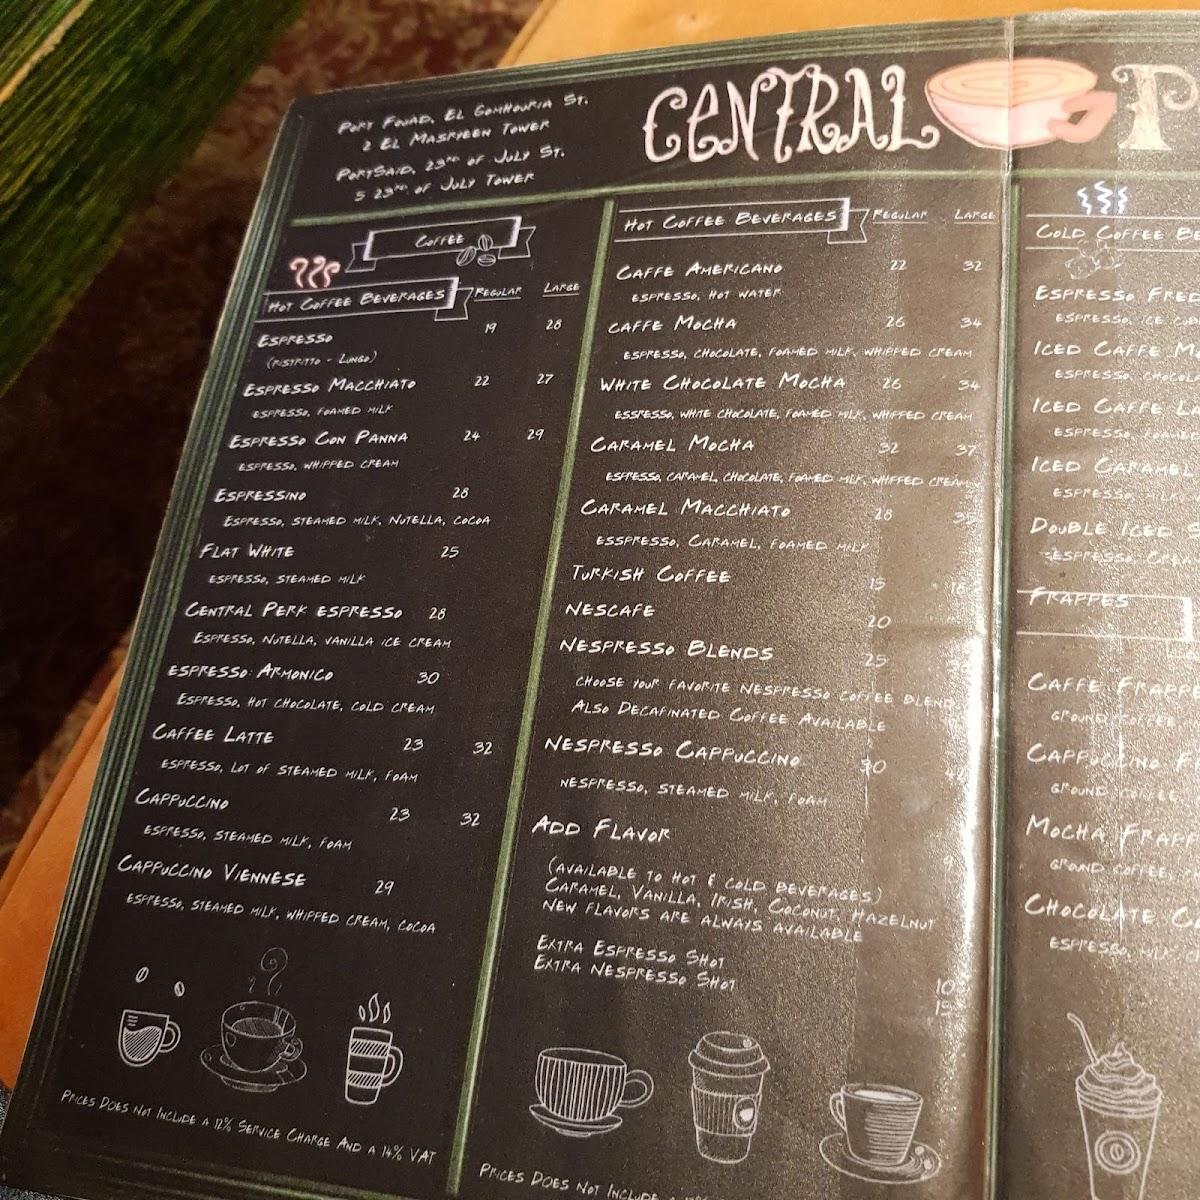 Port Fouad, El Gomhouria St.
2 El Masryeen Tower
PortSaid, 23rd of July St.
5 23rd of July Tower
CENTRAL P
Coffee
Hot Coffee Beverages Regular Large
Espresso 19 28
(Ristritto - Lungo)
Espresso Macchiato 22 27
Espresso, foamed milk
Espresso Con Panna 24 29
Espresso, whipped cream
Espressino 28
Espresso, steamed milk, Nutella, cocoa
Flat White 25
Espresso, steamed milk
Central Perk espresso 28
Espresso, Nutella, vanilla ice cream
espresso Armonico 30
Espresso, hot chocolate, cold cream
Caffee Latte 23 32
espresso, lot of steamed milk, foam
Cappuccino 23 32
espresso, steamed milk, foam
Cappuccino Viennese 29
espresso, steamed milk, whipped cream, cocoa
Prices Does Not Include a 12% Service Charge And a 14% VAT
Hot Coffee Beverages Regular Large
Caffe Americano 22 32
espresso, hot water
caffe Mocha 26 34
espresso, chocolate, foamed milk, whipped cream
White Chocolate Mocha 26 34
esspresso, white chocolate, foamed milk, whipped cream
Caramel Mocha 32 37
espresso, caramel, chocolate, foamed milk, whipped cream
Caramel Macchiato 28
esspresso, Caramel, foamed milk
Turkish Coffee 15
Nescafe 20
Nespresso Blends 25
choose your favorite nespresso coffee blend
Also Decafinated Coffee Available
Nespresso Cappuccino 30
nespresso, steamed milk, foam
Add Flavor 9
(available to hot & cold beverages)
Caramel, Vanilla, Irish, Coconut, Hazelnut
new flavors are always available
Extra Espresso Shot 10
Extra Nespresso Shot
Prices Does Not Include a
Cold Coffee Be
Espresso Fred
espresso, ice cub
Iced Caffe M
espresso, chocol
Iced Caffe L
espresso, foamed
Iced Caramel
espresso, milk,
Double Iced
espresso, crea
Frappes
Caffe Frapp
ground coffee
Cappuccino F
ground coffee,
Mocha Frapp
ground coffee,
Chocolate C
espresso, milk,